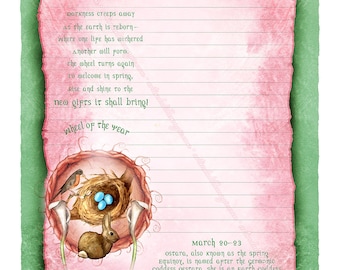 Darkness creeps away
as the earth is reborn-
Where one life has withered
Another will form.
The wheel turns again
to welcome in spring,
Rise and shine to the
new gifts it shall bring!
Wheel of the Year
March 20-23
Ostara, also known as the spring
equinox, is named after the Germanic
goddess Ostara. She is an earth goddess